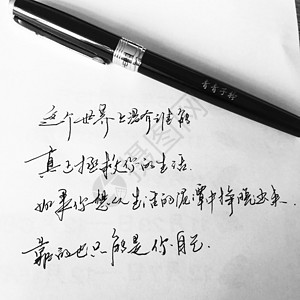 这个世界上没有谁能
真正拯救你的生活
如果你想从生活的泥潭中挣脱出来.
靠的也只能是你自己.